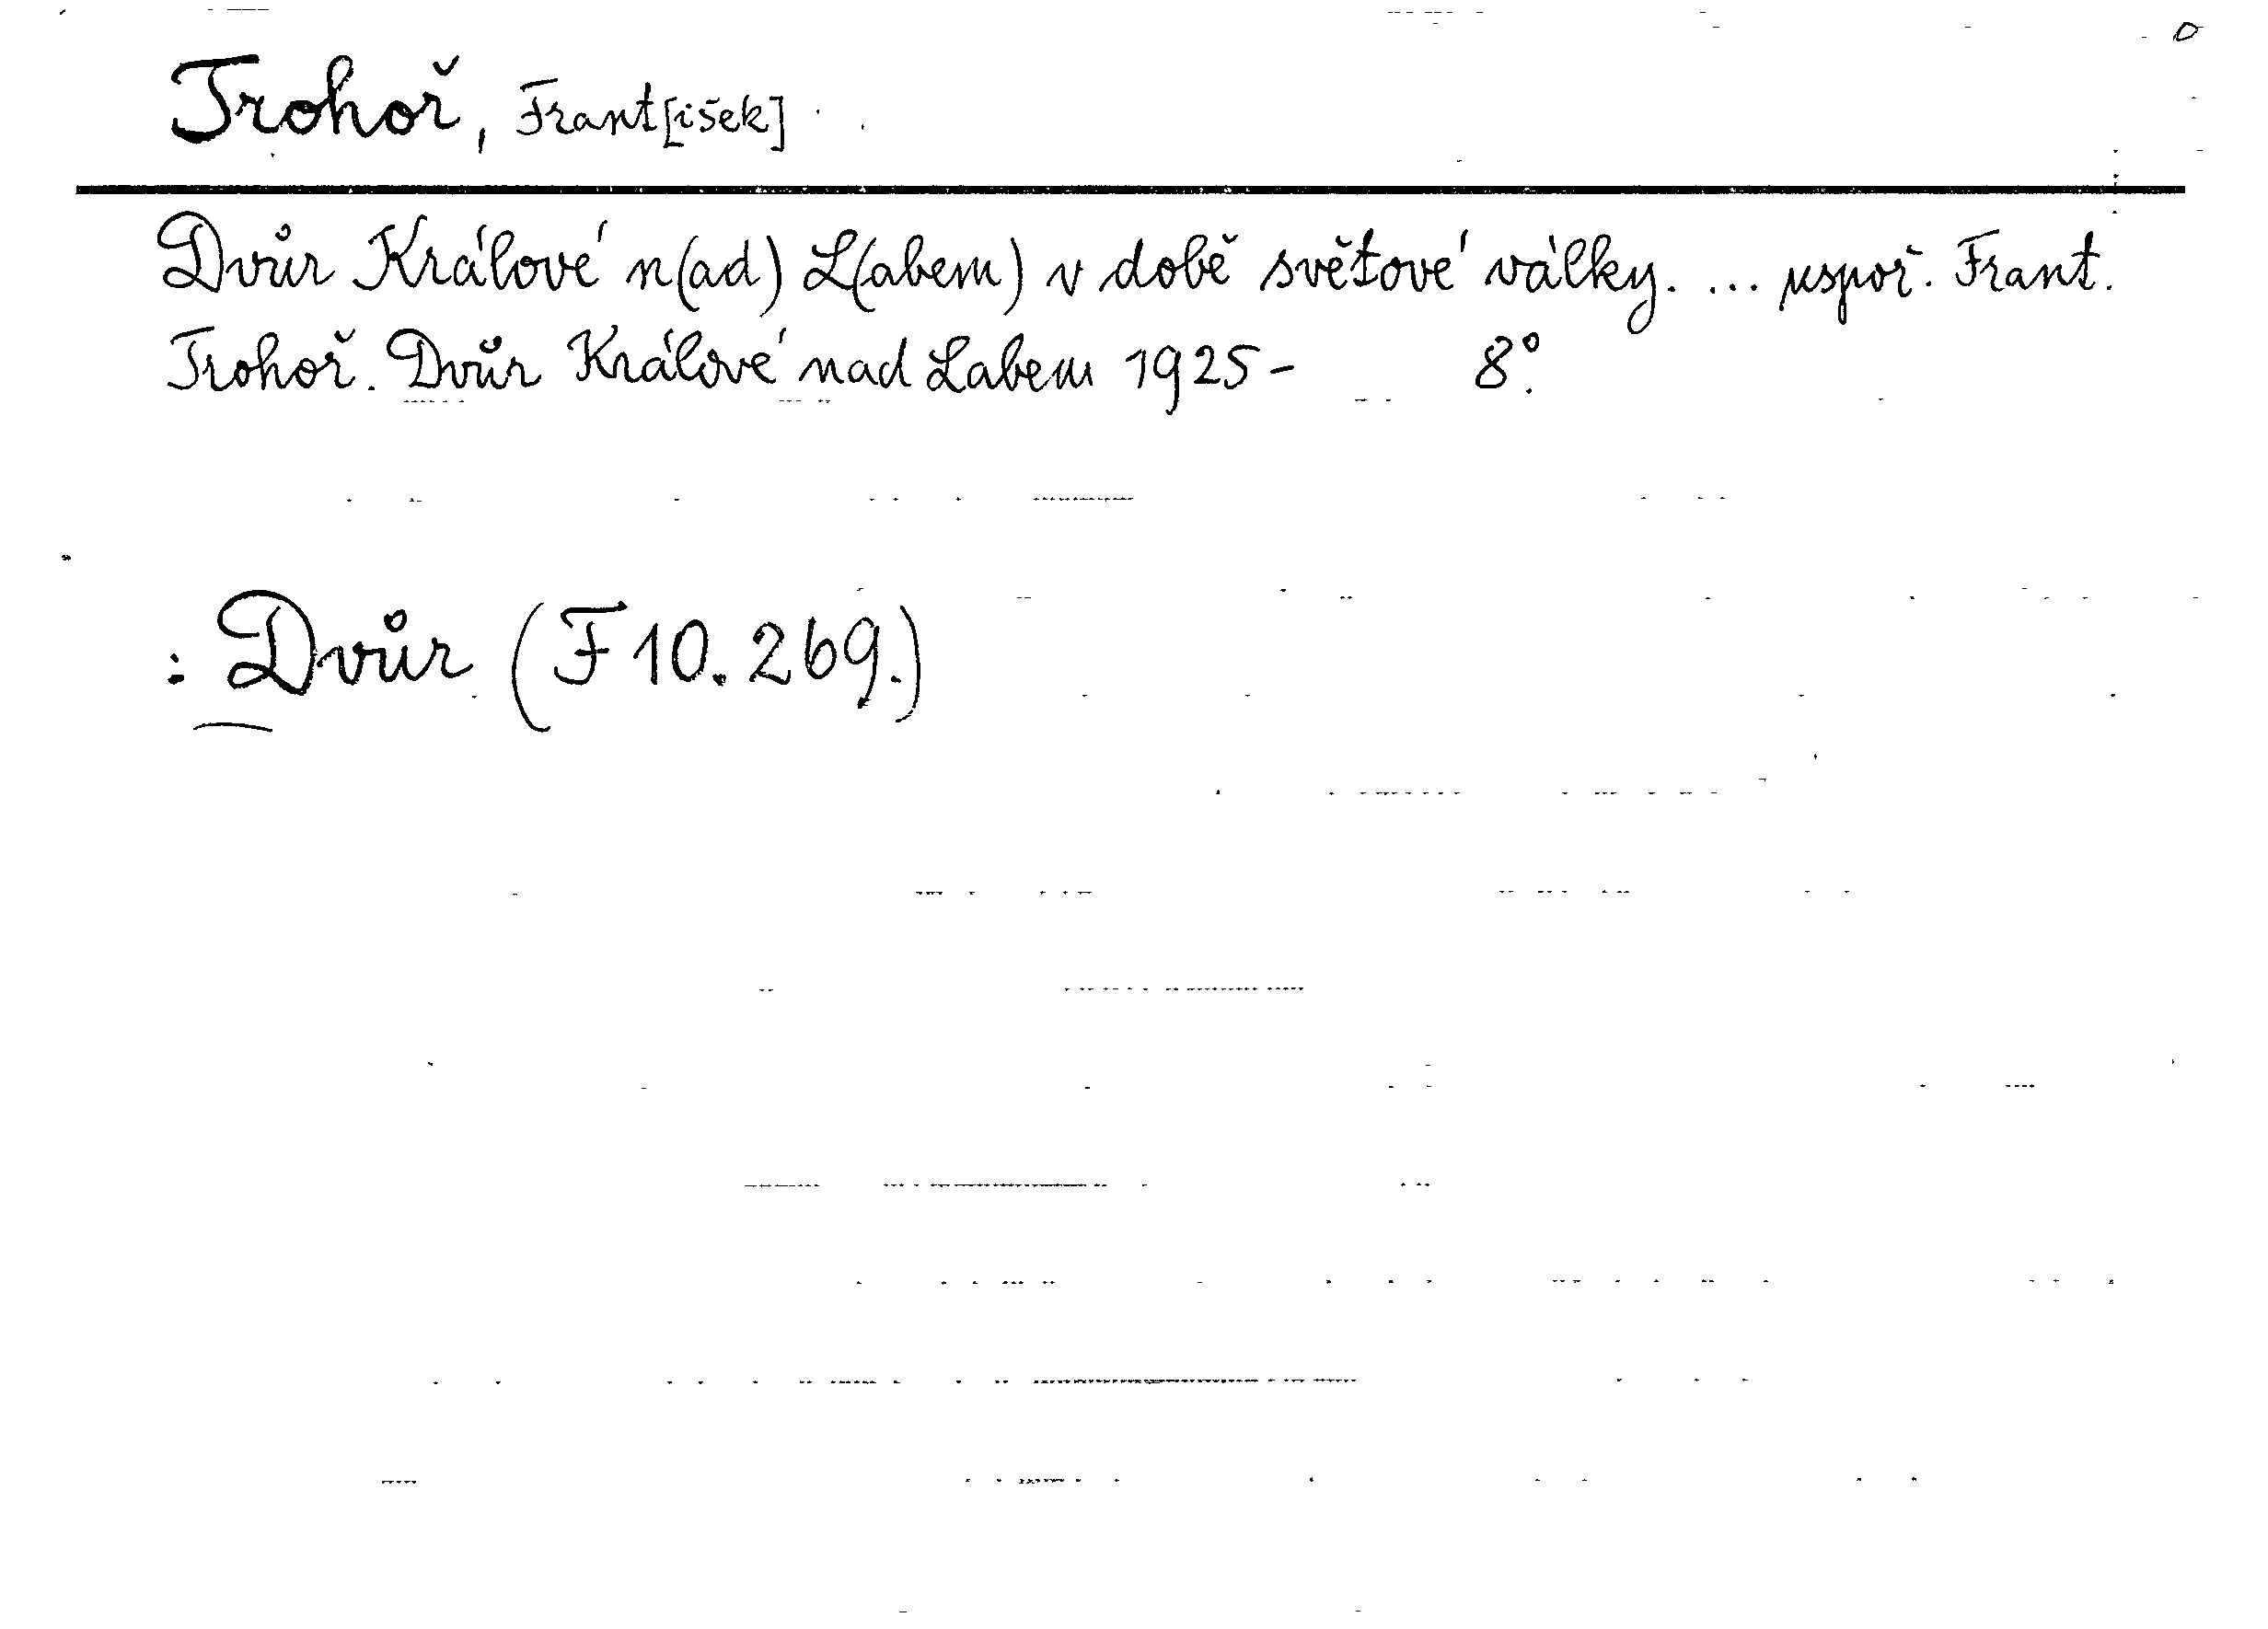 Trohoř, Frant[išek]
Dvůr Králové n(ad) L(abem) v době světové války. ... uspoř. Frant.
Trohoř. Dvůr Králové nad Labem 1925 - 8°.
: Dvůr (F 10.269.)